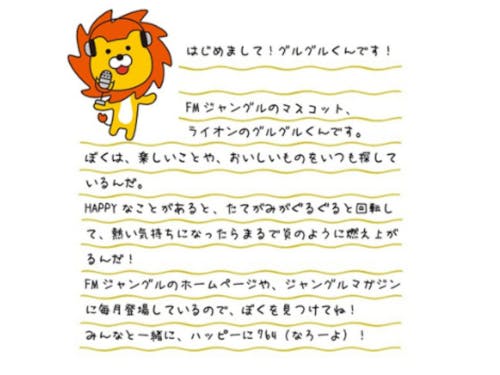 はじめまして！グルグルくんです！
FMジャングルのマスコット、
ライオンのグルグルくんです。
ぼくは、楽しいことや、おいしいものをいつも探して
いるんだ。
HAPPYなことがあると、たてがみがぐるぐると回転し
て、熱い気持ちになったらまるで炎のように燃え上が
るんだ！
FMジャングルのホームページや、ジャングルマガジン
に毎月登場しているので、ぼくを見つけてね！
みんなと一緒に、ハッピーに764（なろーよ）！